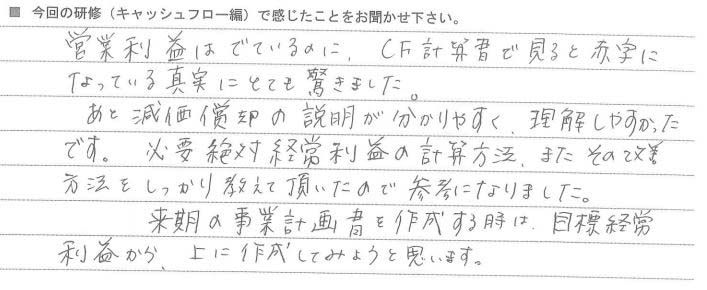 ■ 今回の研修（キャッシュフロー編）で感じたことをお聞かせ下さい。
営業利益はでているのに、CF計算書で見ると赤字に
なっている真実にとても驚きました。
あと減価償却の説明が分かりやすく、理解しやすかった
です。必要絶対経常利益の計算方法、またその改善
方法をしっかり教えて頂いたので参考になりました。
来期の事業計画書を作成する時は、目標経常
利益から、上に作成してみようと思います。